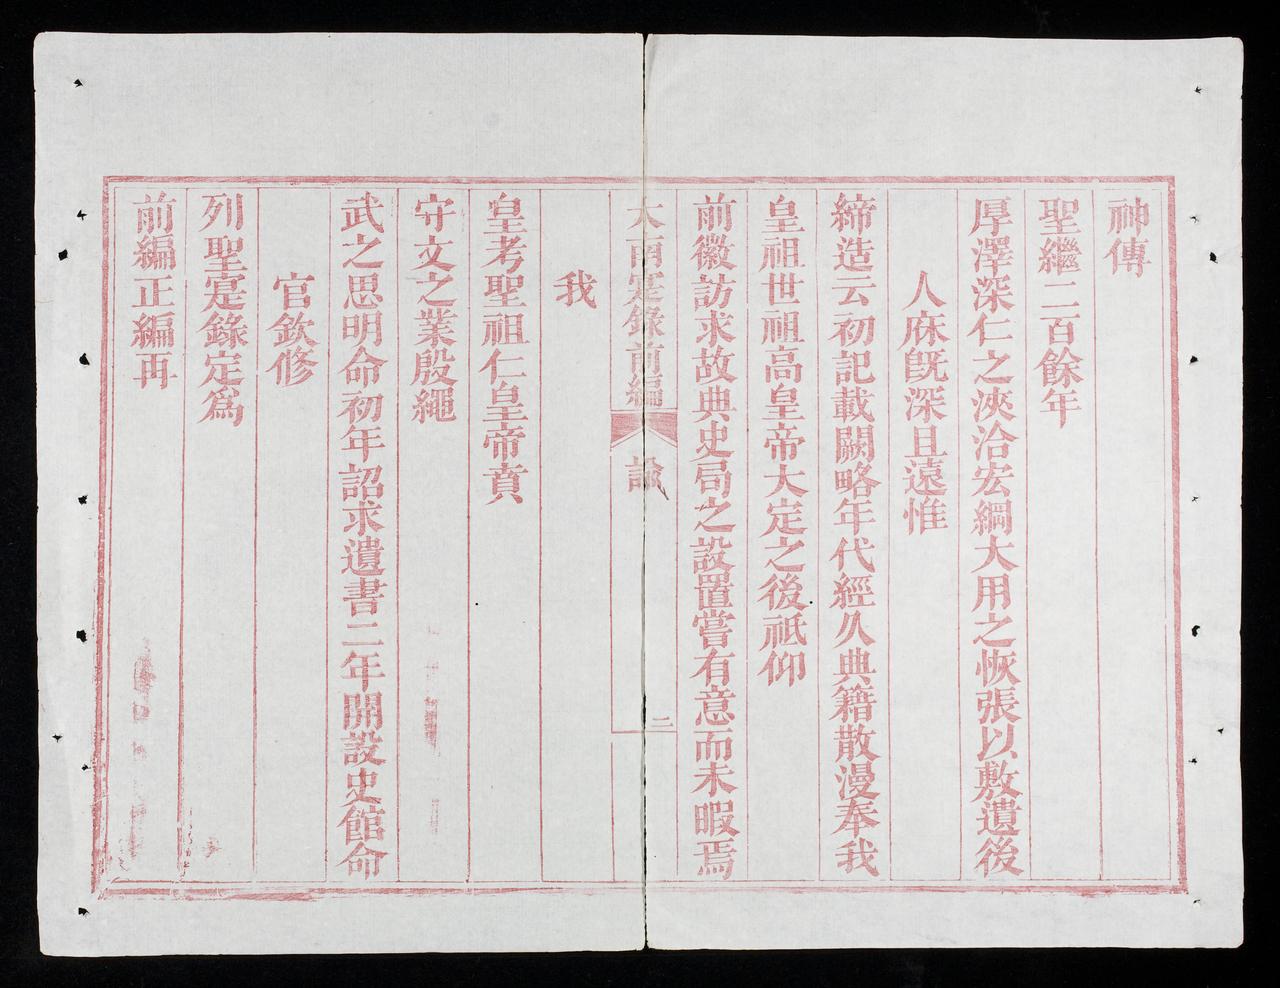 神傳
聖繼二百餘年
厚澤深仁之浹洽宏綱大用之恢張以敷遺後
人庥旣深且遠惟
締造云初記載闕略年代經久典籍散漫奉我
皇祖世祖高皇帝大定之後祗仰
前徽訪求故典史局之設置嘗有意而未暇焉
大南寔錄前編 諭 二
我
皇考聖祖仁皇帝賁
守文之業殷繩
武之思明命初年詔求遺書二年開設史館命
官欽修
列聖寔錄定爲
前編正編再